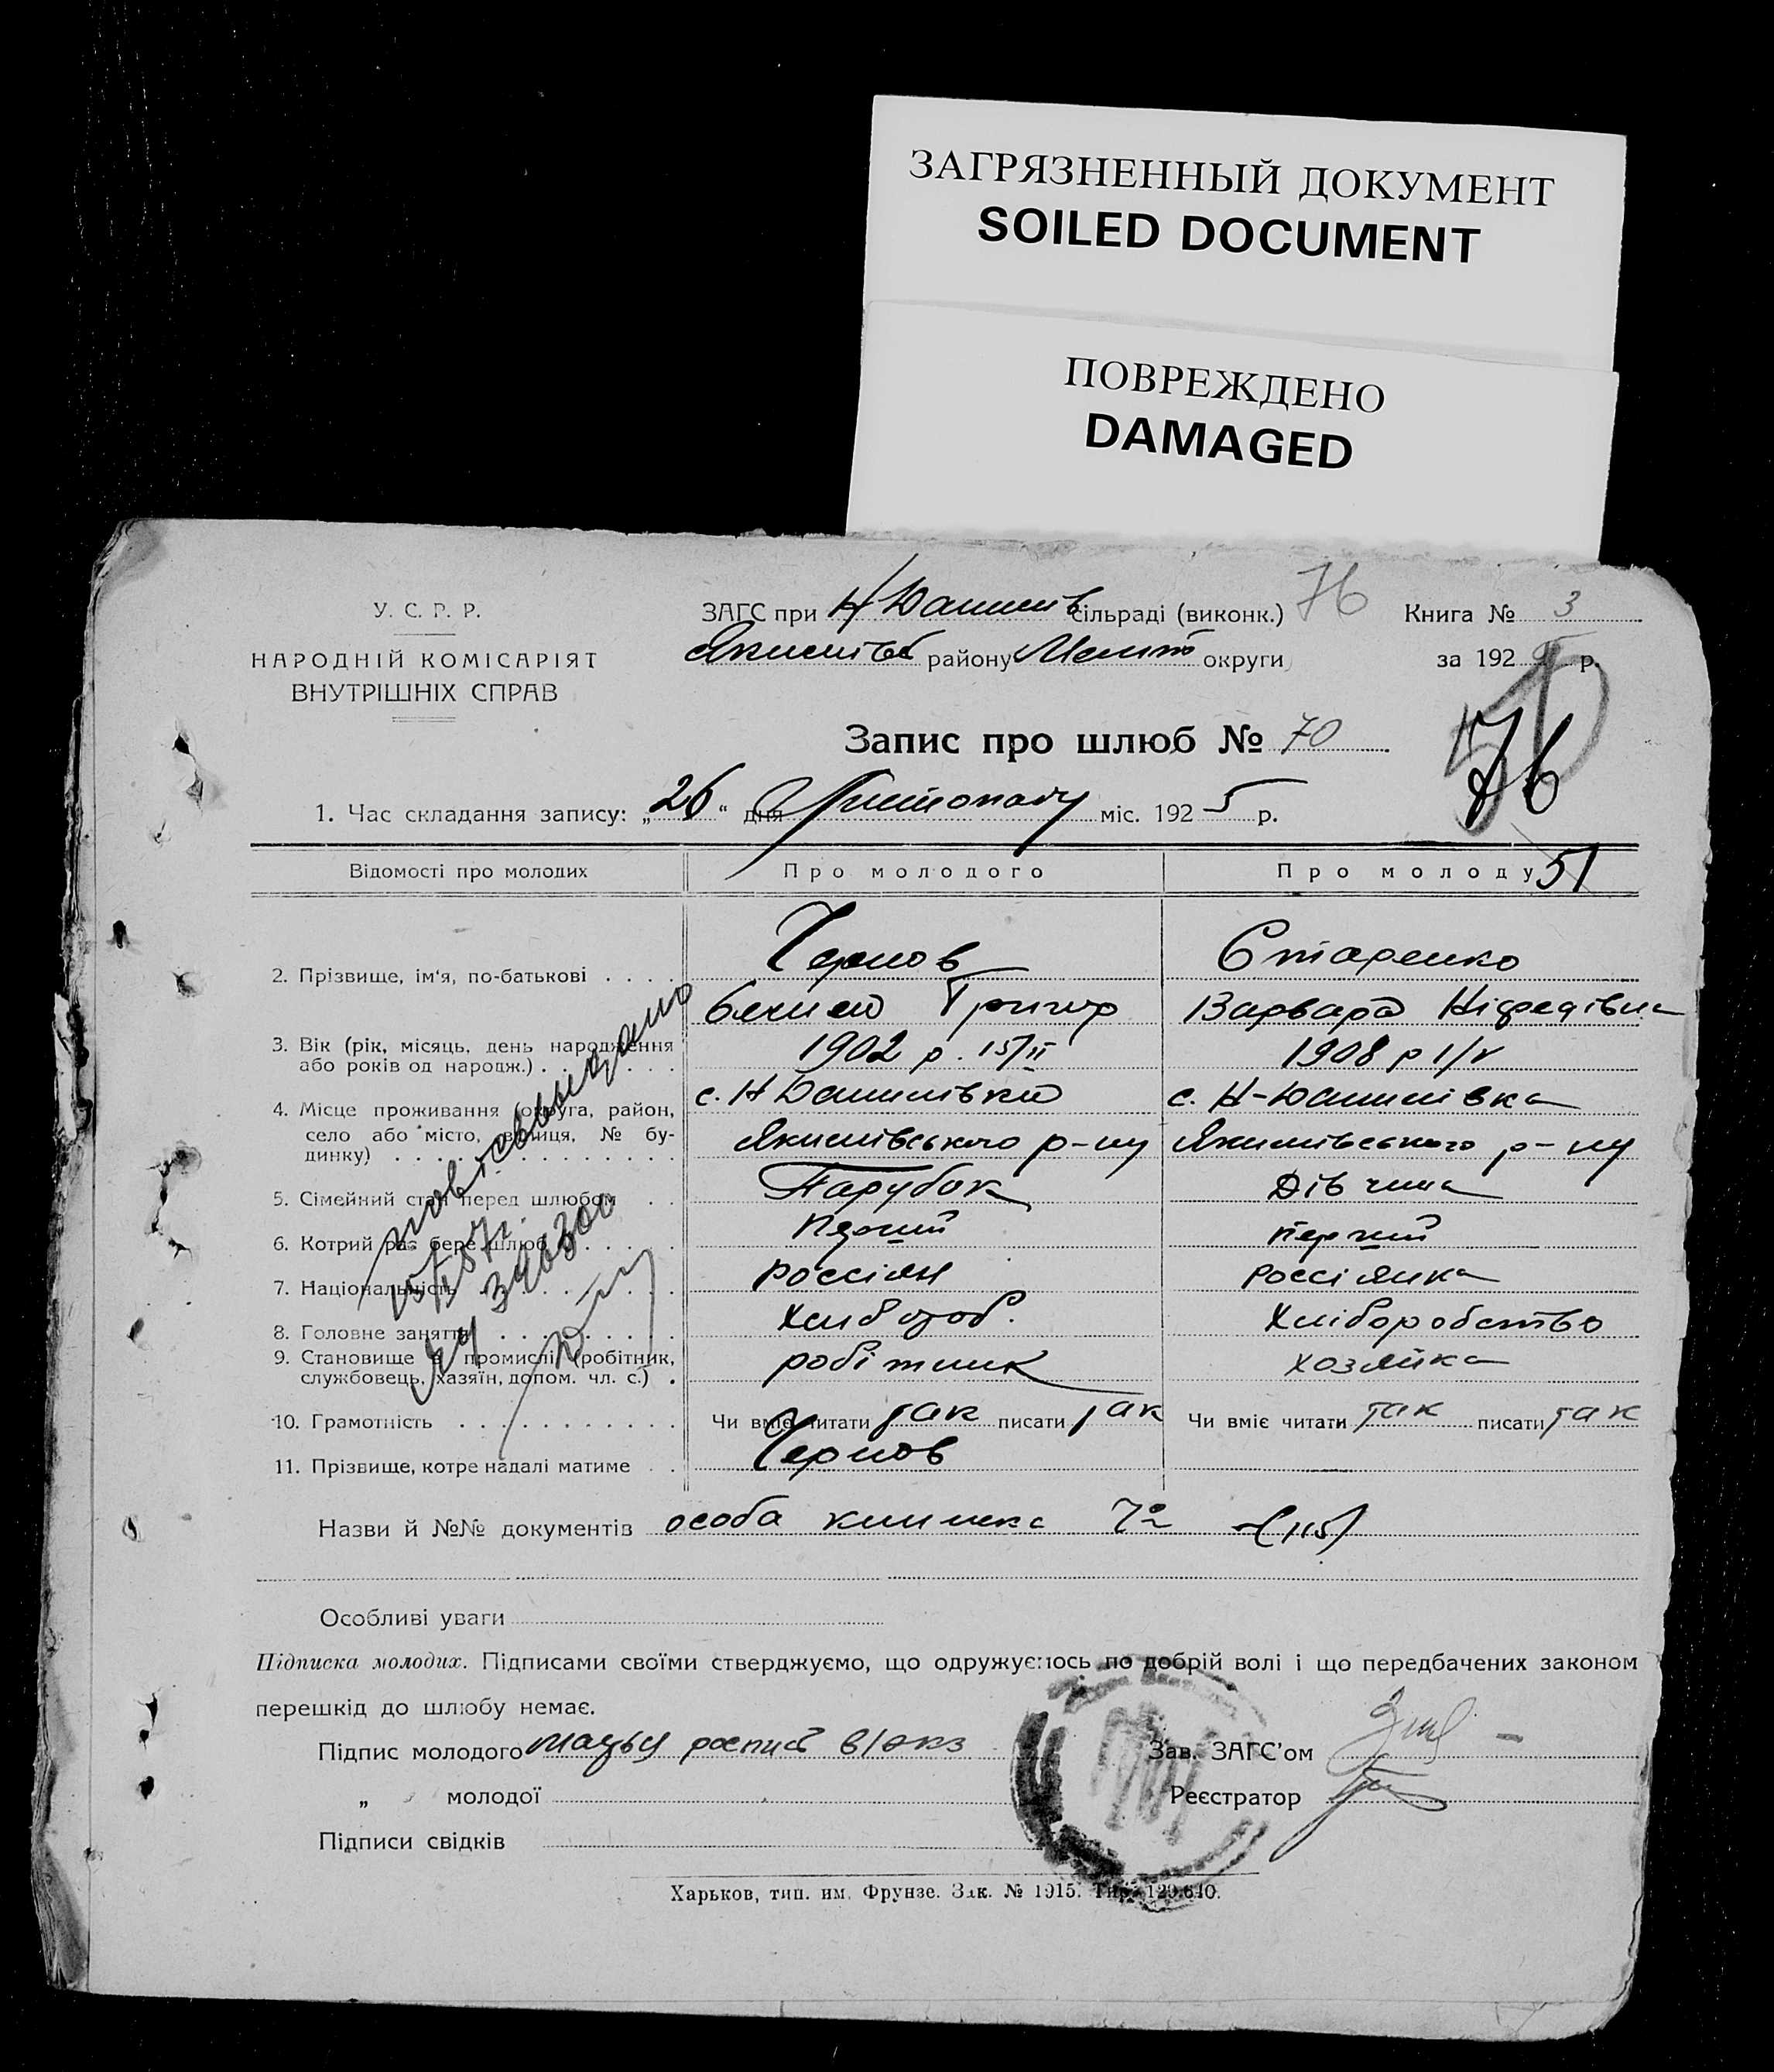 ЗАГРЯЗНЕННЫЙ ДОКУМЕНТ
SOILED DOCUMENT
ПОВРЕЖДЕНО
DAMAGED
У. С. Р. Р.
НАРОДНІЙ КОМІСАРІЯТ
ВНУТРІШНІХ СПРАВ
ЗАГС при Н Данилів сільраді (виконк.) 76 Книга № 3
Якимівсь району Меліто округи за 192 р.
Запис про шлюб № 70
76
1. Час складання запису: „26“ дня Листопаду міс. 1925 р.
51
Відомості про молодих Про молодого Про молоду
2. Прізвище, ім'я, по-батькові . . . . Чернов Старенко
Григор Варвара
3. Вік (рік, місяць, день народження
або років од народж.) . . . . . . . 1902 р. 15/II 1908 р 1/V
4. Місце проживання (округа, район,
село або місто, вулиця, № бу-
динку) . . . . . . . . . . . . . . .
с. Н Данилівка с. Н-Данилівка
Якимівського р-ну Якимівського р-ну
5. Сімейний стан перед шлюбом . . Парубок Дівчина
6. Котрий раз бере шлюб . . . . . . Перший Перший
7. Національність . . . . . . . . . . россіян россіянка
8. Головне заняття . . . . . . . . . Хлібороб. Хліборобство
9. Становище в промислі (робітник,
службовець, хазяїн, допом. чл. с.) . робітник хозяйка
10. Грамотність . . . . . . . . . . . Чи вміє читати так писати так Чи вміє читати так писати так
11. Прізвище, котре надалі матиме . . Чернов
Назви й №№ документів особа книжка 72 (115)
Особливі уваги
Підписка молодих. Підписами своїми стверджуємо, що одружуємось по добрій волі і що передбачених законом
перешкід до шлюбу немає.
Підпис молодого роспис в/екз
„ молодої
Підписи свідків
Зав. ЗАГС'ом
Реєстратор
Харьков, тип. им. Фрунзе. Зак. № 1915. Тир. 129.640.